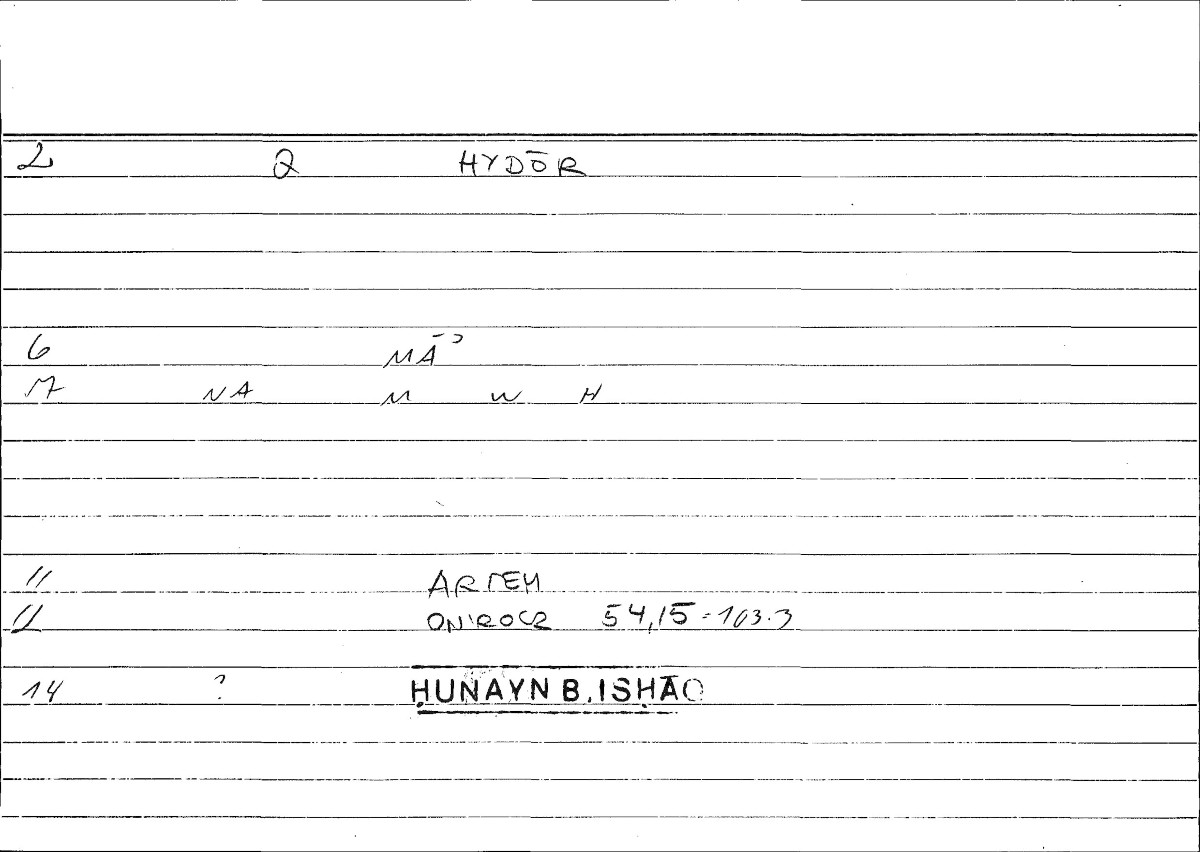 2 Q HYDŌR
6 MĀʾ
M NA M W H
11 ARTEM
11 ONIROCR 54,15 = 103.3
14 ? ḤUNAYN B. ISḤĀQ